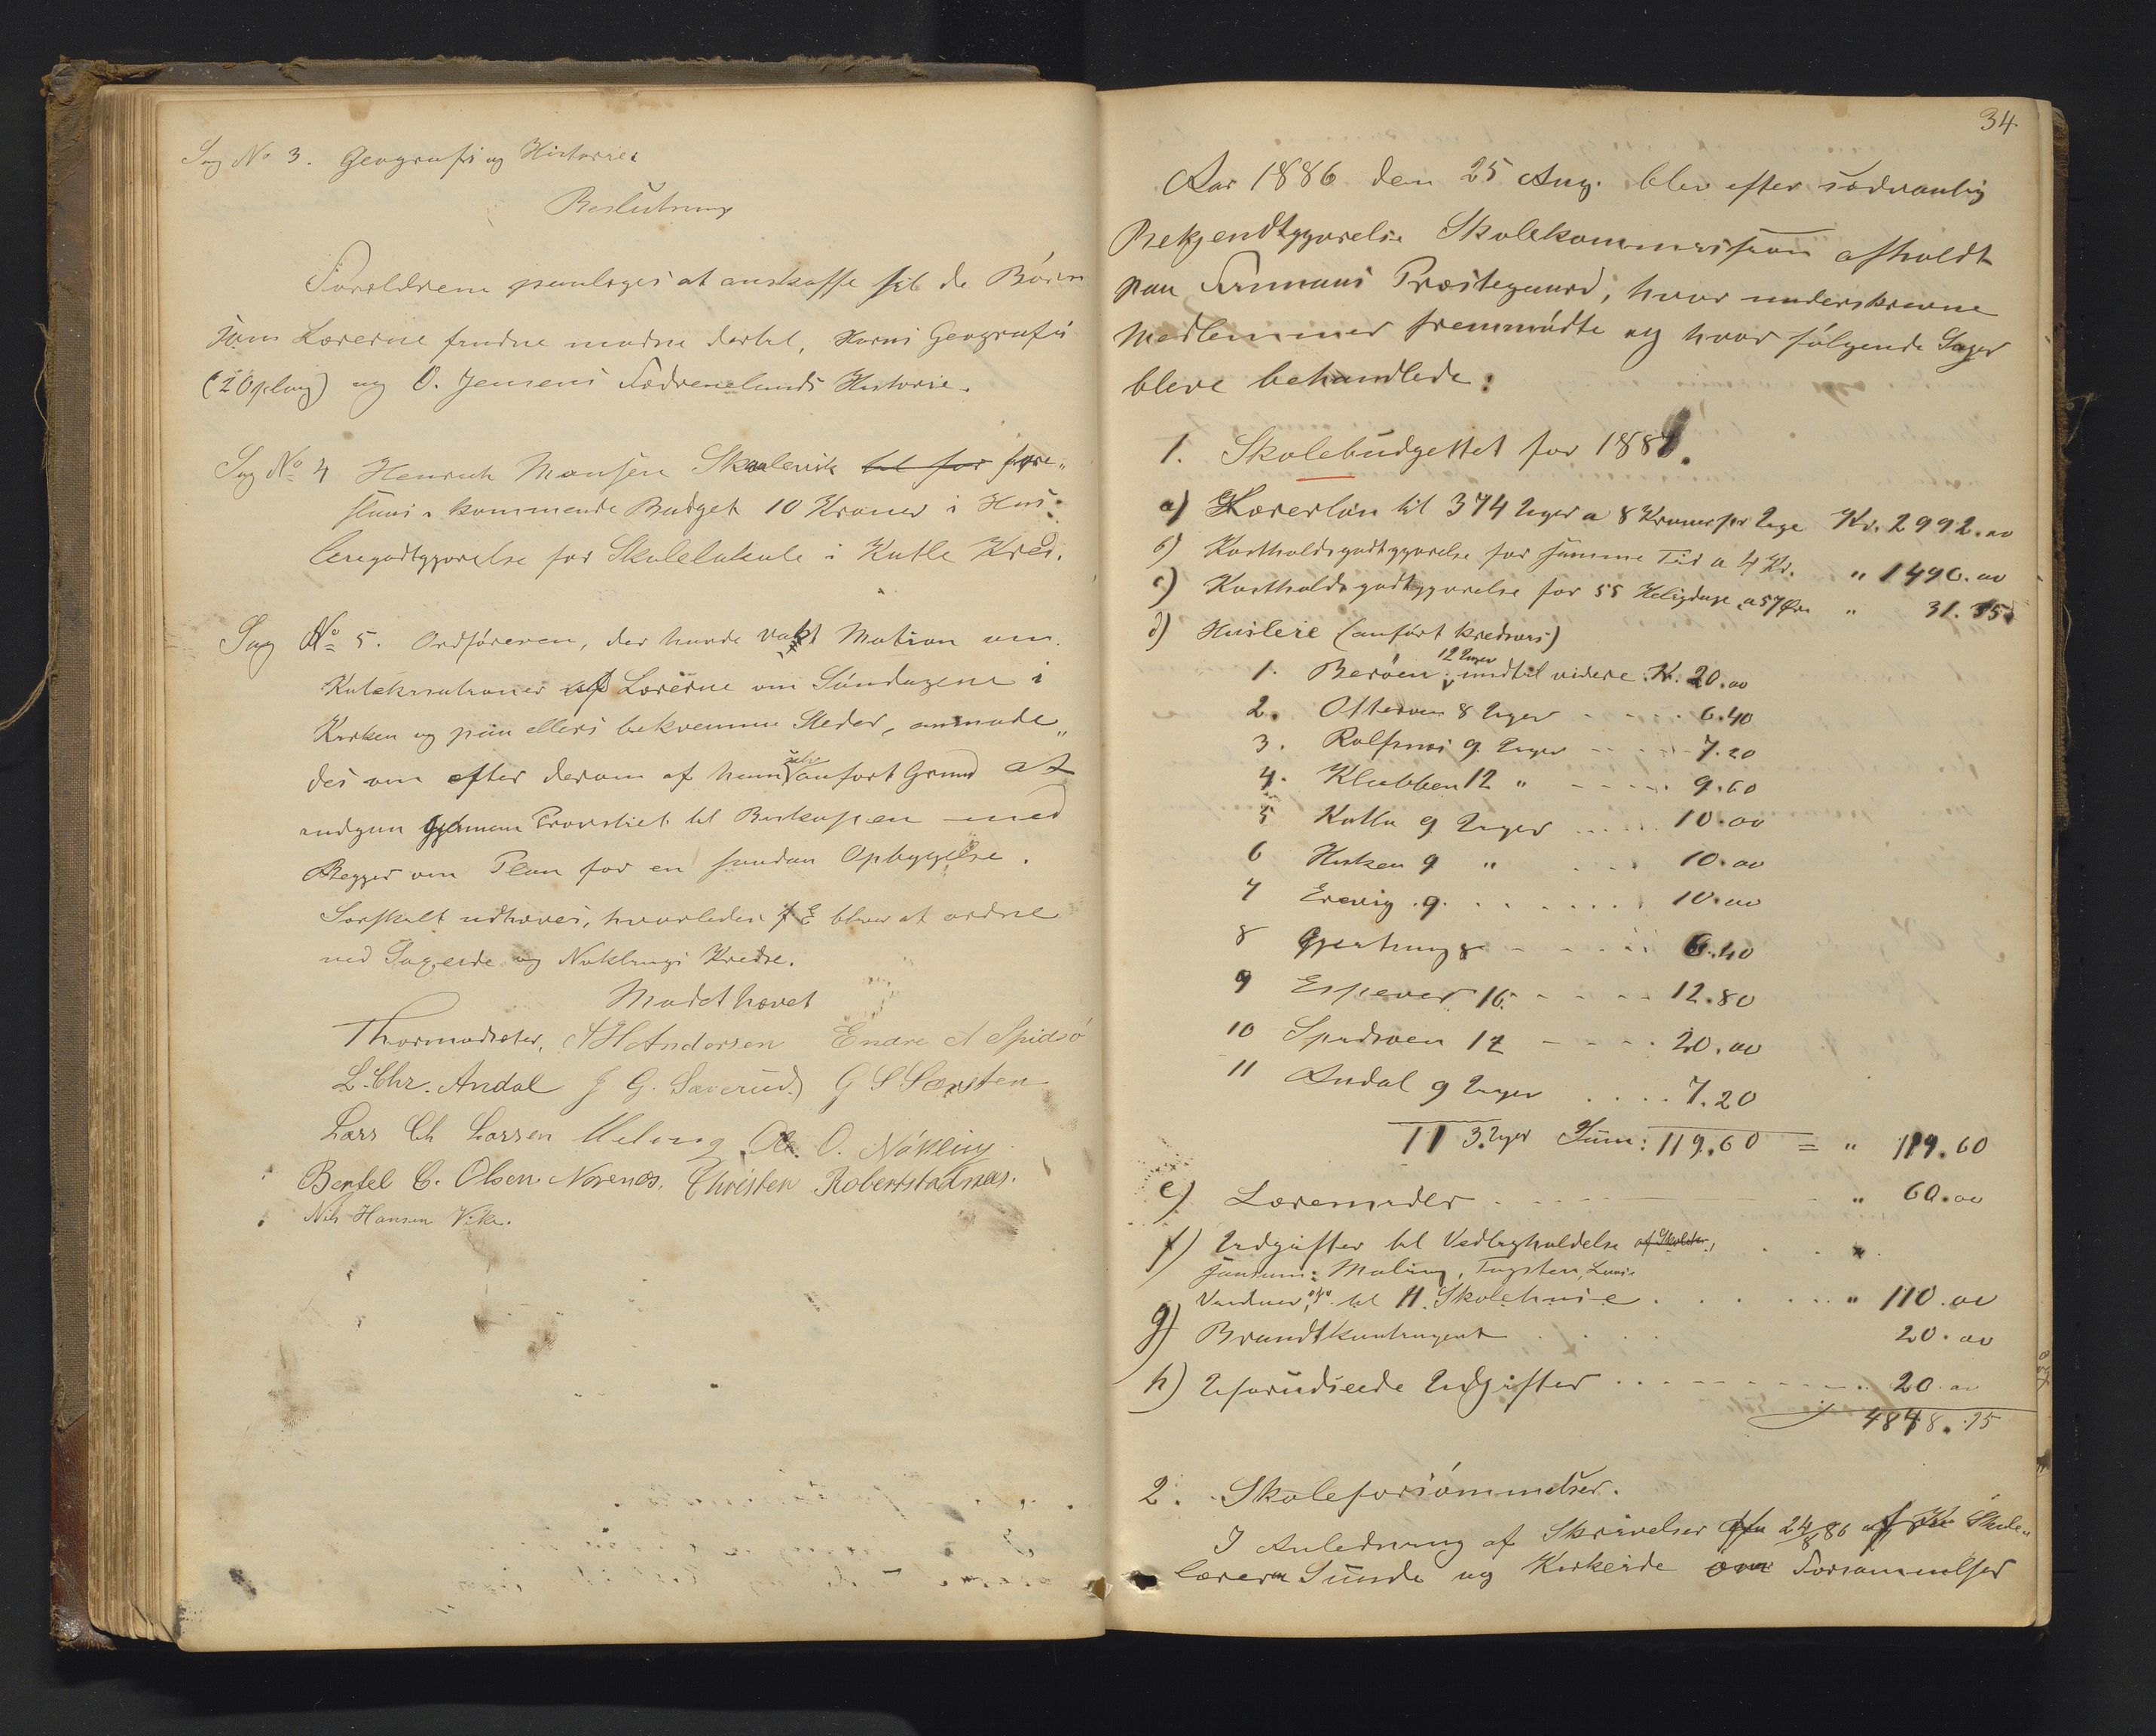 Sag No 3. Geografi og Historie.
Beslutning
Forældrene paalægges at anskaffe til de Börn
som Lærerne finder modne dertil, Horns Geografi
(2 Oplag) og O. Jensens Fædrenelands Historie.
Sag No 4 Henrich Monsen Skaalevik til for fore-
slaaes i kommende Budget 10 Kroner i Hus-
leiegodtgjörelse for Skolelokale i Katle Kres.
Sag No 5. Ordföreren, der havde vakt Motion om
Katekisationer af Lærerne om Söndagene i
Kirken og paa ellers bekvemme Steder, anmode-
des om efter derom af ham selv anfört Grund at
andgaa gjennem Provstiet til Biskoppen med
Begjær om Plan for en saadan Opbyggelse.
Særskilt udhæves, hvorledes f E bliver at ordne
ved Sageide og Nöklings Kredse.
Mödet hævet
Thormodsæter, A H Andersen Endre A Spidsö
L. Chr. Andal J G. Saverud. G S Sørsten
Lars Ch Larsen Meling Ole O. Nökling
Bertel C. Olsen Norenæs, Christen Robertstadnæs.
Nils Hansen Vike.
34.
Aar 1886 den 25 Aug. blev efter sædvanlig
Bekjendtgjörelse Skolekommission afholdt
paa Finnaas Præstegaard, hvor underskrevne
Medlemmer fremmödte og hvor fölgende Sager
bleve behandlede:
1. Skolebudgettet for 1887.
a) Lærerlön til 374 Uger a 8 Kroner pr Uge Kr. 2992.00
b) Kostholdsgodtgjörelse for samme Tid a 4 Kr. " 1496.00
c) Kostholdsgodtgjörelse for 55 Heligdage a 57 Öre " 31.35
d) Husleie (anfört kredsvis)
1. Beröen 12 Uger indtil videre Kr. 20.00
2. Otteröen 8 Uger - - - - 6.40
3. Rolfsnæs 9 Uger - - - - 7.20
4. Klubben 12 " - - - - 9.60
5 Katla 9 Uger . . . . 10.00
6 Hisken 9 " . . . 10.00
7 Erevig 9 . . . . . . 10.00
8 Gjertnug 8 - - - - 6.40
9 Espever 16 - - - - 12.80
10 Spidsöen 12 - - - - 20.00
11 Andal 9 Uger . . . . 7.20
113 Uger Sum: 119.60 = " 119.60
e) Læremidler - - - - " 60.00
f) Udgifter til Vedligeholdelse af Skoler,
saasom: Maling, Tagsten,
Vinduer, o.s.v. til 11 Skolehuse . . . . . " 110.00
g) Brandtkontingent . . . . 20.00
h) Uforudseede Udgifter - - - - - " 20.00
4848.95
2. Skoleforsömmelser.
I Anledning af Skrivelser fra 24/8 86 af Skole-
lærern Sunde og Kirkeide om Forsömmelser